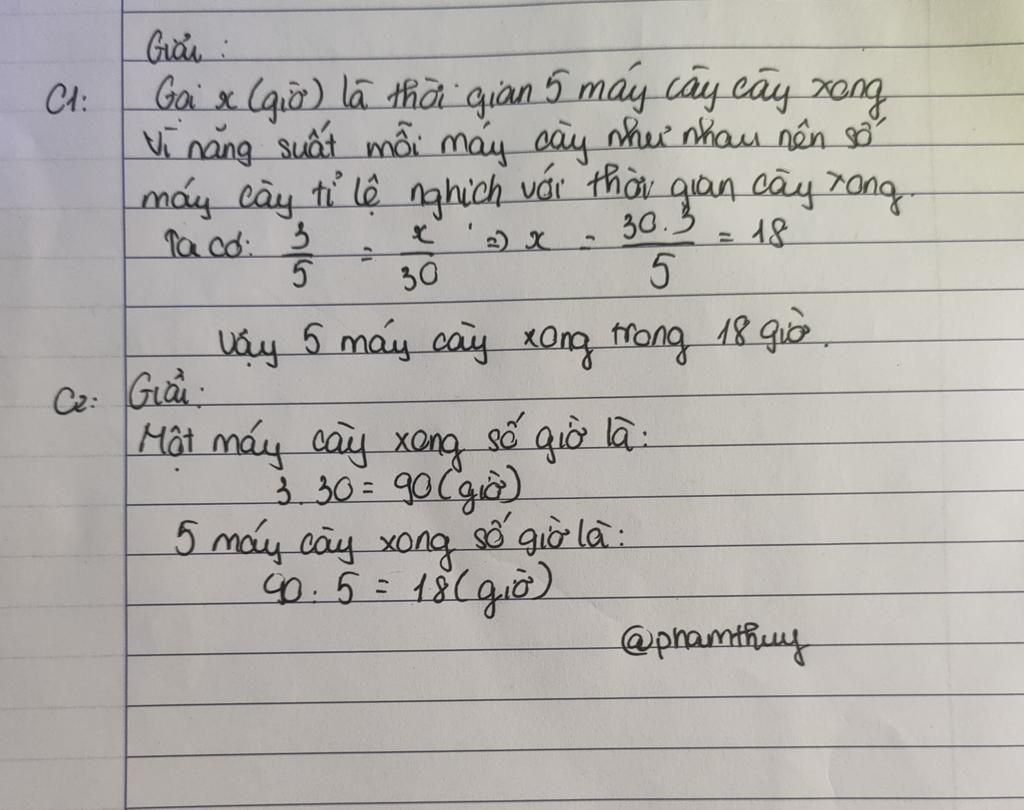 Giải:
C1: Gọi x (giờ) là thời gian 5 máy cày cày xong
Vì năng suất mỗi máy cày như nhau nên số
máy cày tỉ lệ nghịch với thời gian cày xong.
Ta có: 3/5 = x/30 => x = 30.3/5 = 18
Vậy 5 máy cày xong trong 18 giờ.
C2: Giải:
Một máy cày xong số giờ là:
3.30 = 90 (giờ)
5 máy cày xong số giờ là:
90 : 5 = 18 (giờ)
@phamthuy